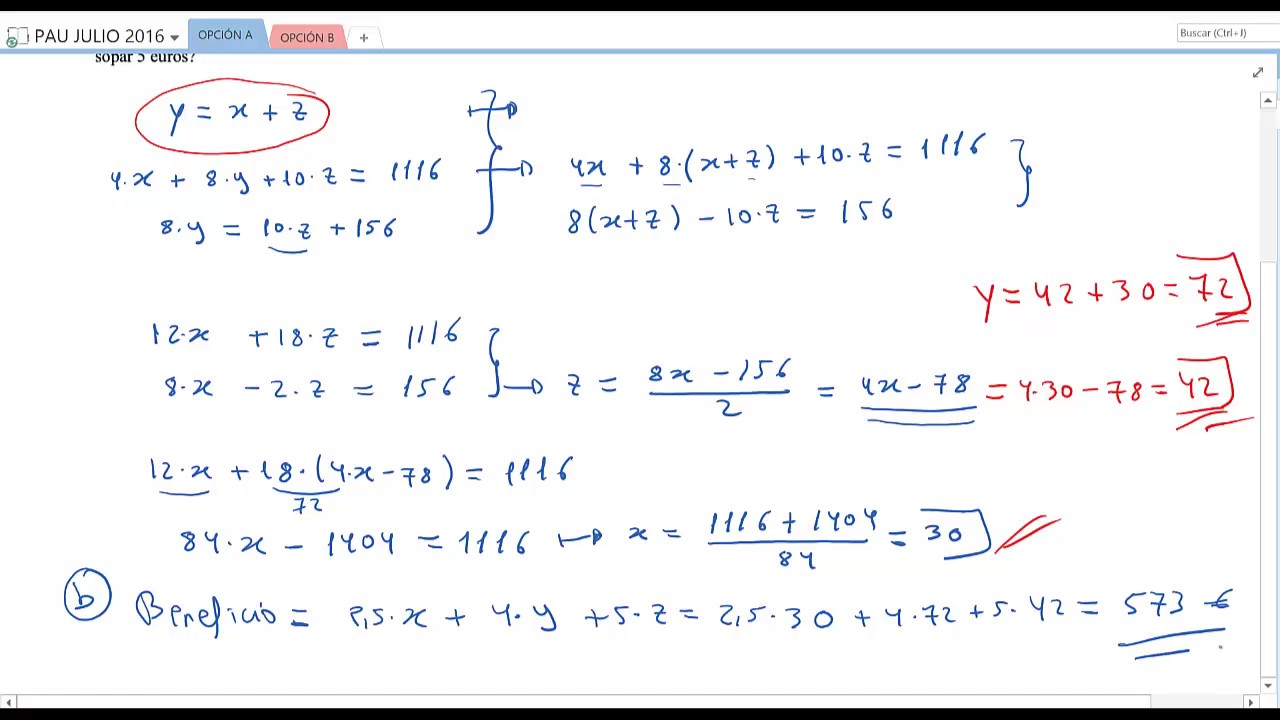 PAU JULIO 2016 OPCIÓN A OPCIÓN B +
Buscar (Ctrl+J)
sopar 5 euros?
y = x + z
4·x + 8·y + 10·z = 1116
8·y = 10·z + 156
4x + 8·(x+z) + 10·z = 1116
8(x+z) - 10·z = 156
y = 42 + 30 = 72
12·x + 18·z = 1116
8·x - 2·z = 156
z = (8x - 156)/2 = 4x - 78 = 4·30 - 78 = 42
12·x + 18·(4·x - 78) = 1116
72
84·x - 1404 = 1116 ↦ x = (1116 + 1404)/84 = 30
b Beneficio = 2,5·x + 4·y + 5·z = 2,5·30 + 4·72 + 5·42 = 573 €